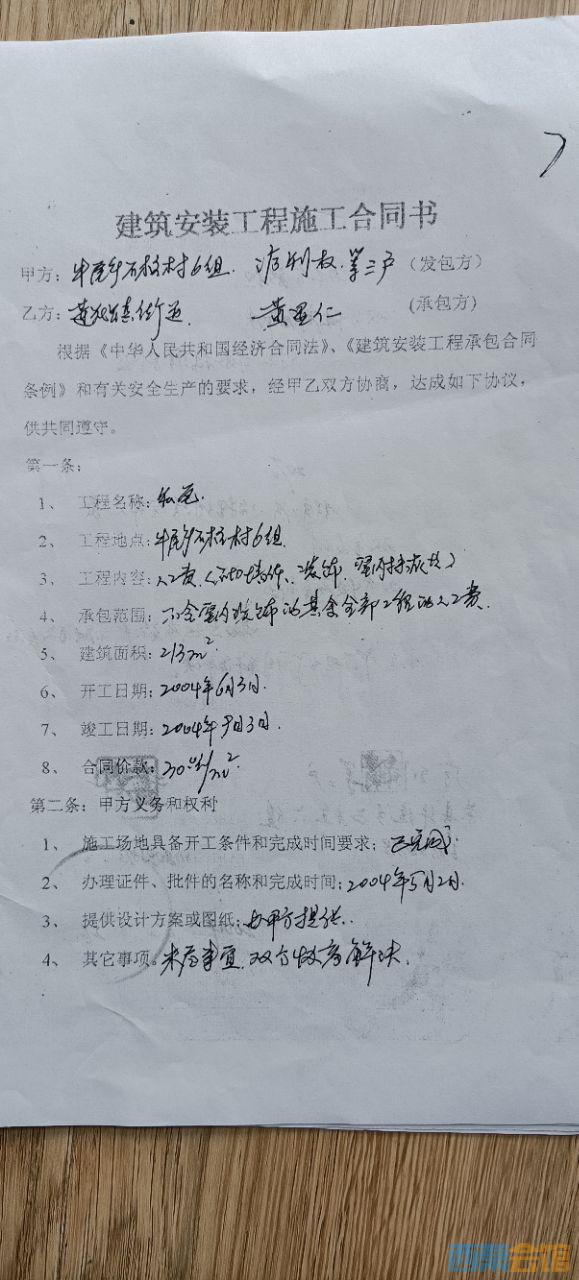 建筑安装工程施工合同书
甲方：石板村6组 第三户（发包方）
乙方：街道 黄 仁（承包方）
根据《中华人民共和国经济合同法》、《建筑安装工程承包合同
条例》和有关安全生产的要求，经甲乙双方协商，达成如下协议，
供共同遵守。
第一条：
1、 工程名称：私宅
2、 工程地点：村6组
3、 工程内容：人工费
4、 承包范围：不含室内装饰的其余全部工程的人工费
5、 建筑面积：213m²
6、 开工日期：2004年6月3日
7、 竣工日期：2004年9月3日
8、 合同价款：
第二条：甲方义务和权利
1、 施工场地具备开工条件和完成时间要求：已完成
2、 办理证件、批件的名称和完成时间：2004年5月2日
3、 提供设计方案或图纸：由甲方提供
4、 其它事项。未尽事宜，双方协商解决。
西泵会馆